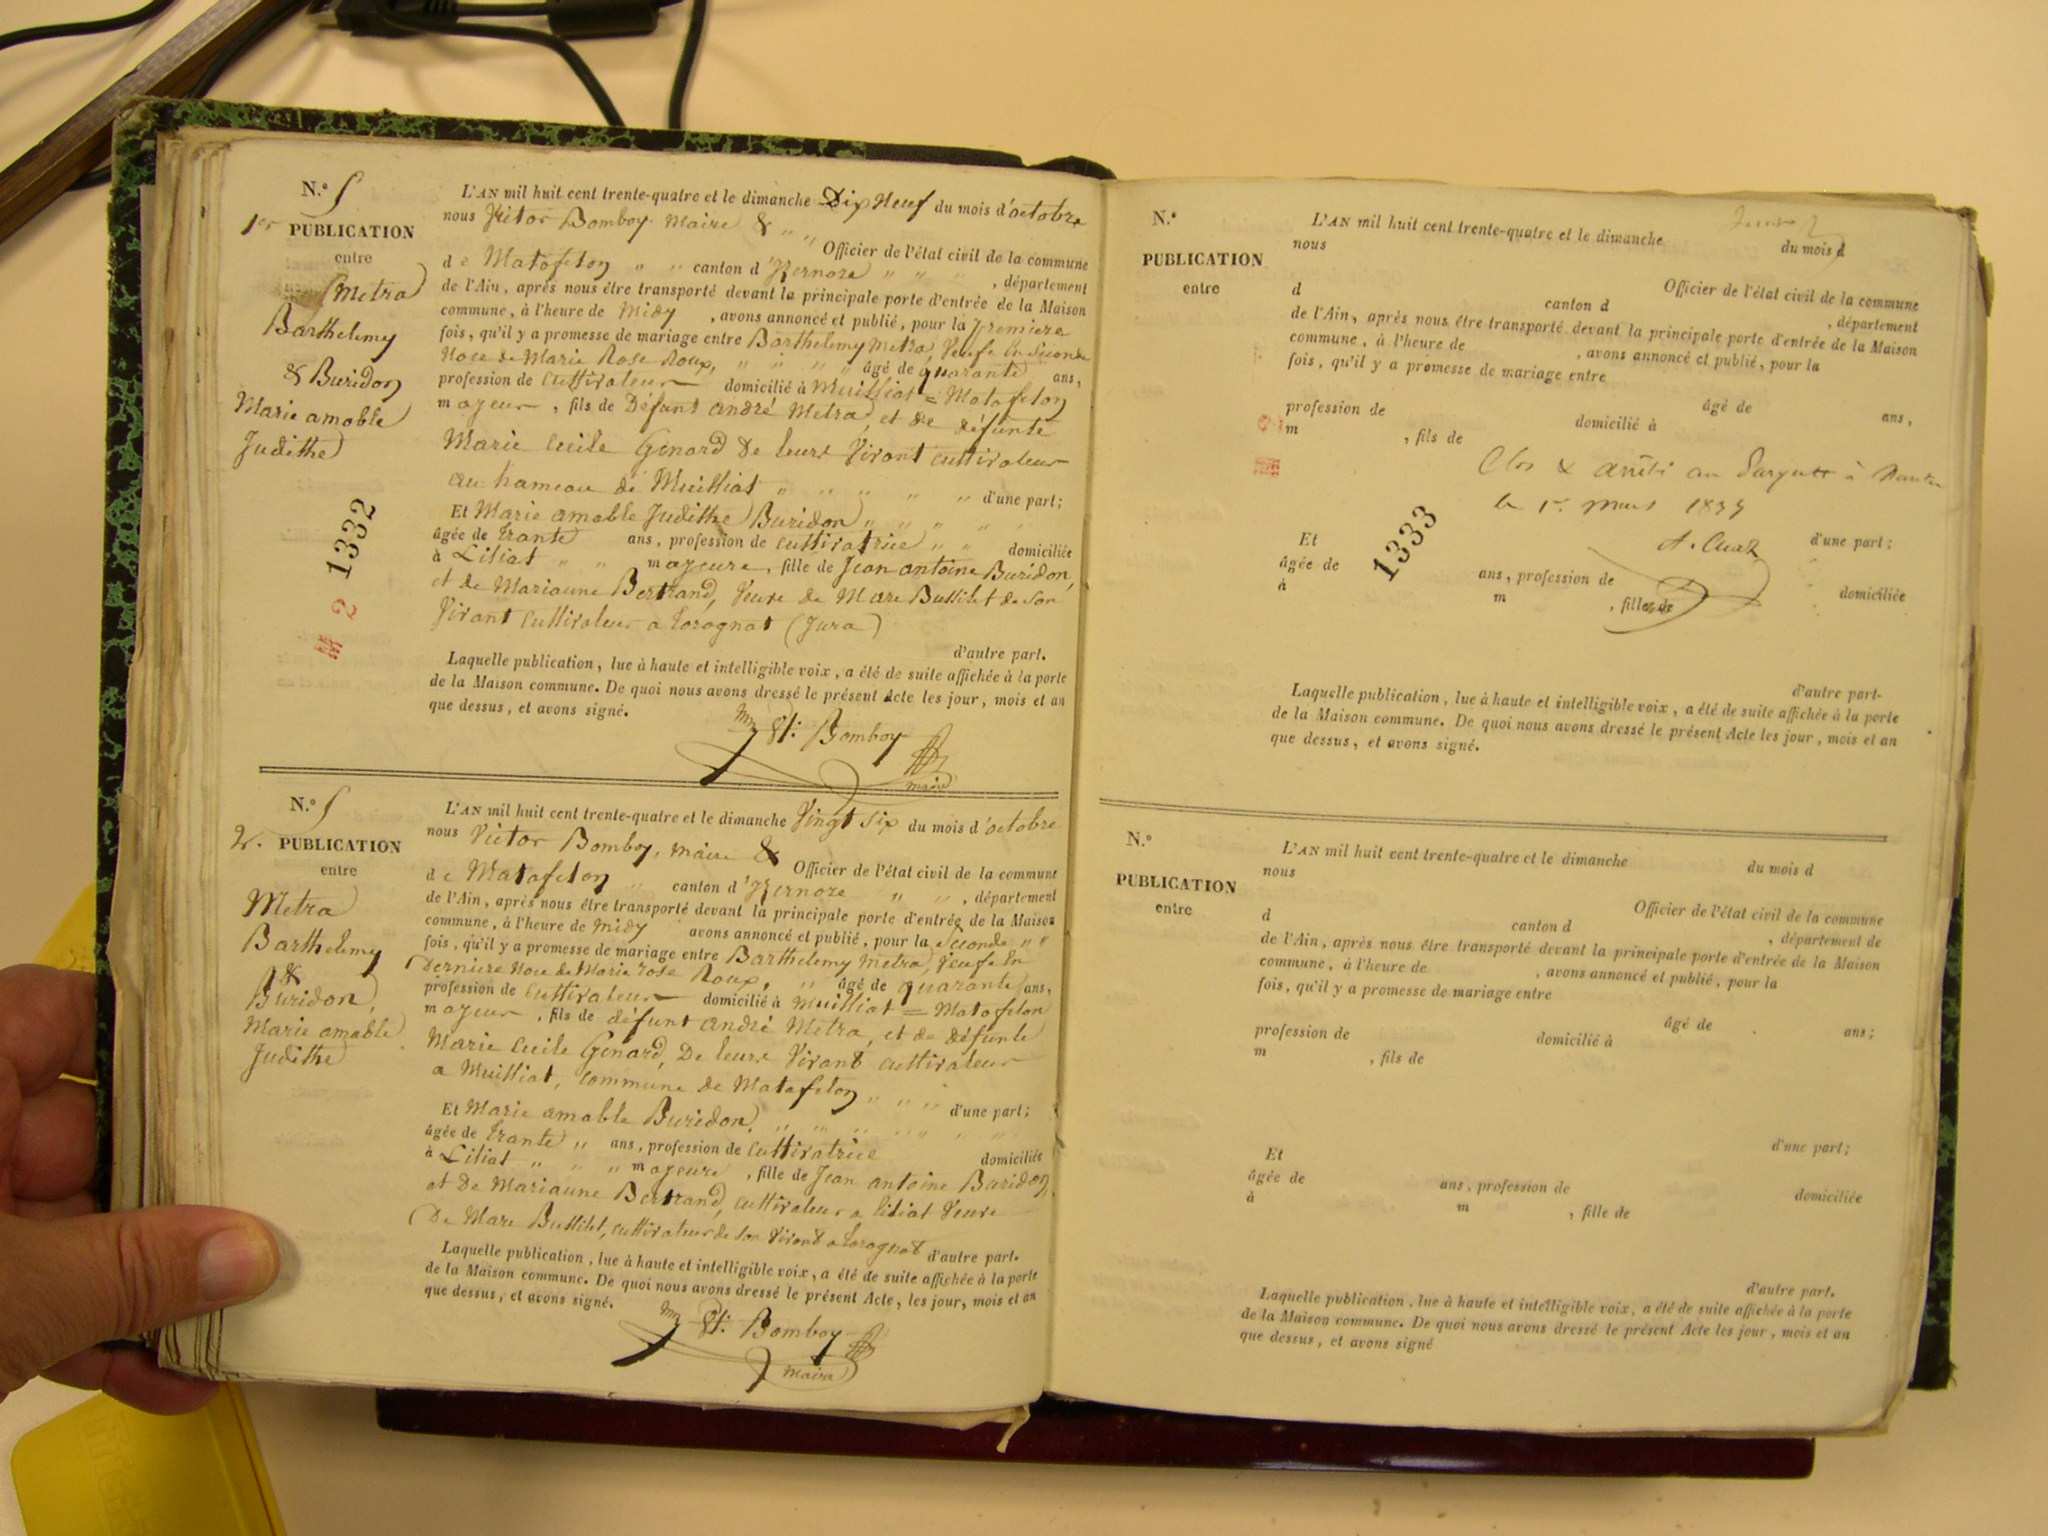 N.º 5
1er PUBLICATION
entre
Metra
Barthelemy
& Buridon
Marie amable
Judithe
1332
M 2
L'AN mil huit cent trente-quatre et le dimanche Dix Neuf du mois d'octobre
nous Victor Bomboy Maire & " " Officier de l'état civil de la commune
de Matafelon " " canton d'Izernore " " " , département
de l'Ain, après nous être transporté devant la principale porte d'entrée de la Maison
commune, à l'heure de Midy , avons annoncé et publié, pour la premiere
fois, qu'il y a promesse de mariage entre Barthelemy Metra, Veufe En Seconde
Noce de Marie Rose Roux, " " " " âgé de quarante ans,
profession de cultivateur domicilié à Meuilliat = Matafelon
majeur , fils de Défunt andré Metra, et de défunte
Marie Cecile Genard De leurs Vivant cultivateur
au hameau de Meuilliat " " " " " d'une part;
Et Marie amable Judithe Buridon " " " "
âgée de trante ans, profession de cultivatrice " " domiciliée
à Liliat " " majeure, fille de Jean antoine Buridon,
et de Marianne Bertrand, Veuve de Marc Buttilet de son
Vivant cultivateur a Coragnat (Jura)
d'autre part.
Laquelle publication, lue à haute et intelligible voix, a été de suite affichée à la porte
de la Maison commune. De quoi nous avons dressé le présent Acte les jour, mois et an
que dessus, et avons signé.
Vt: Bomboy
maire
N.º 5
2e. PUBLICATION
entre
Metra
Barthelemy
&
Buridon,
Marie amable
Judithe
L'AN mil huit cent trente-quatre et le dimanche Vingt Six du mois d'octobre
nous Victor Bomboy, maire & Officier de l'état civil de la commune
de Matafelon " canton d'Izernore " " , département
de l'Ain, après nous être transporté devant la principale porte d'entrée de la Maison
commune, à l'heure de midy avons annoncé et publié, pour la Seconde " "
fois, qu'il y a promesse de mariage entre Barthelemy Metra, Veufe En
Derniere Noce de Marie rose Roux, " âgé de quarante ans,
profession de cultivateur domicilié à Meuilliat = Matafelon
majeur , fils de défunt andré Metra, et de défunte
Marie Cecile Genard, De leurs Vivant cultivateur
a Meuilliat, commune de Matafelon " " " d'une part;
Et Marie amable Buridon, " " " " " " "
âgée de trante " ans, profession de cultivatrice domiciliée
à Liliat " " " majeure , fille de Jean antoine Buridon,
et De Marianne Bertrand, cultivateur a liliat Veuve
De Marc Buttilet, cultivateur de son Vivant a Coragnat d'autre part.
Laquelle publication, lue à haute et intelligible voix, a été de suite affichée à la porte
de la Maison commune. De quoi nous avons dressé le présent Acte, les jour, mois et an
que dessus, et avons signé.
Vt: Bomboy
maire
N.º
PUBLICATION
entre
L'AN mil huit cent trente-quatre et le dimanche du mois d
nous
Officier de l'état civil de la commune
d canton d , département
de l'Ain, après nous être transporté devant la principale porte d'entrée de la Maison
commune, à l'heure de , avons annoncé et publié, pour la
fois, qu'il y a promesse de mariage entre
âgé de ans,
profession de domicilié à
m , fils de
Clos & arrêté au Parquet à Nantua
le 1er mars 1835
1333
A. Cuaz
d'une part;
Et
âgée de ans, profession de domiciliée
à m , fille de
d'autre part.
Laquelle publication, lue à haute et intelligible voix, a été de suite affichée à la porte
de la Maison commune. De quoi nous avons dressé le présent Acte les jour, mois et an
que dessus, et avons signé.
N.º
PUBLICATION
entre
L'AN mil huit cent trente-quatre et le dimanche du mois d
nous
Officier de l'état civil de la commune
d canton d , département de
de l'Ain, après nous être transporté devant la principale porte d'entrée de la Maison
commune, à l'heure de , avons annoncé et publié, pour la
fois, qu'il y a promesse de mariage entre
âgé de ans;
profession de domicilié à
m , fils de
d'une part;
Et
âgée de ans, profession de domiciliée
à m , fille de
d'autre part.
Laquelle publication, lue à haute et intelligible voix, a été de suite affichée à la porte
de la Maison commune. De quoi nous avons dressé le présent Acte les jour, mois et an
que dessus, et avons signé